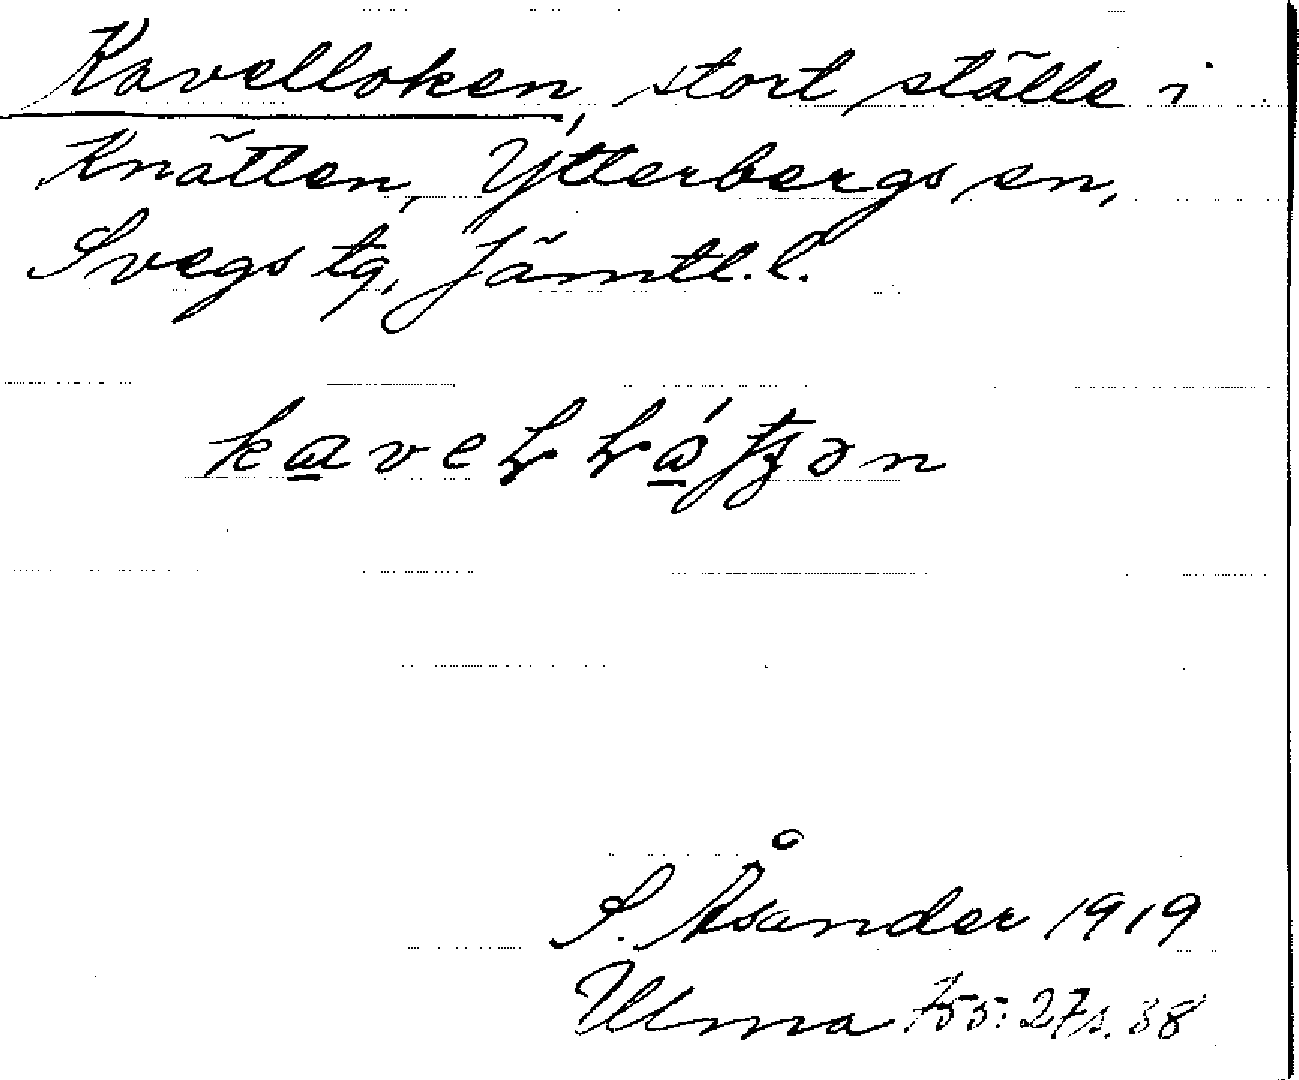 Kavelloken, stort ställe i
Knätten, Ytterbergs en,
Svegs tg, Jämtl. l.
S. Åsander 1919
Ulma 755:27 s. 38